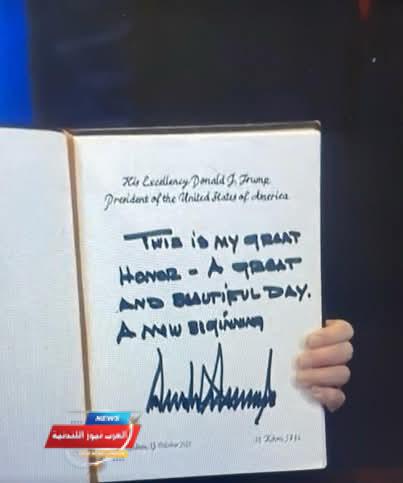 His Excellency Donald J. Trump
President of the United States of America
THIS IS MY GREAT
HONOR - A GREAT
AND BEAUTIFUL DAY.
A NEW BEGINNING
NEWS
العرب نيوز اللندنية
13 October